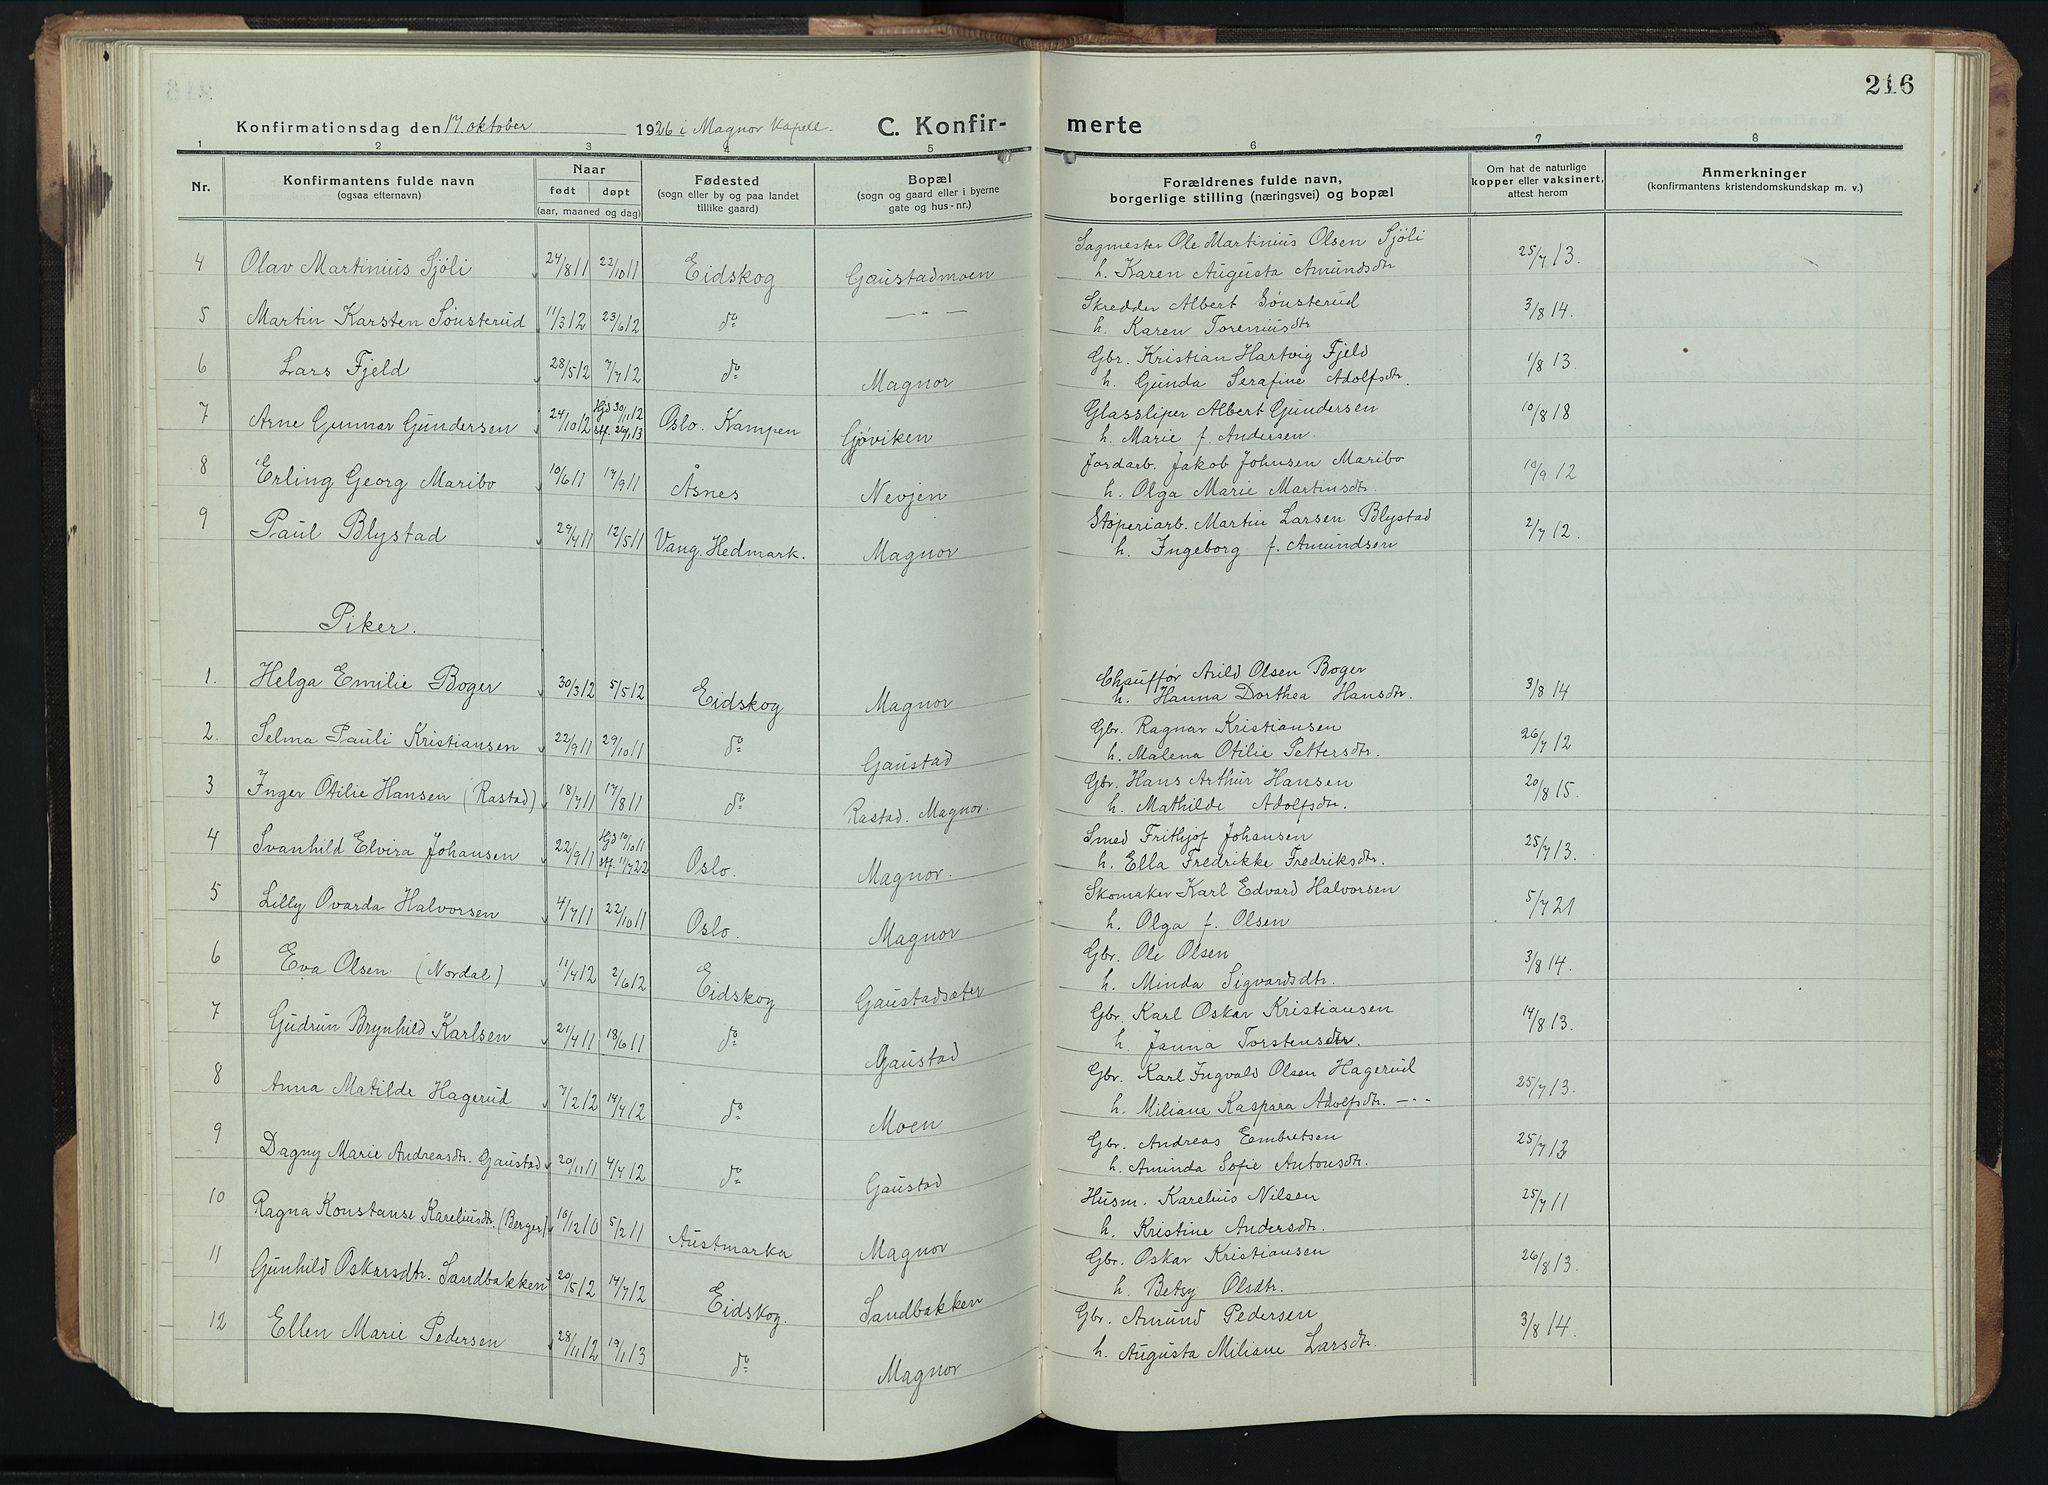 216
Konfirmationsdag den 17. oktober 1926 i Magnor Kapell. C. Konfir-
merte
1 2 3 4 5 6 7 8
Nr. Konfirmantens fulde navn (ogsaa efternavn) Naar født døpt (aar, maaned og dag) Fødested (sogn eller by og paa landet tillike gaard) Bopæl (sogn og gaard eller i byerne gate og hus-nr.) Forældrenes fulde navn, borgerlige stilling (næringsvei) og bopæl Om hat de naturlige kopper eller vaksinert, attest herom Anmerkninger (konfirmantens kristendomskundskap m. v.)
4 Olav Martinius Sjöli 24/8 11 22/10 11 Eidskog Gaustadmoen Sagmester Ole Martinius Olsen Sjöli 25/7 13.
h. Karen Augusta Amundsdtr
5 Martin Karsten Sønsterud 11/3 12 23/6 12 do — " — Skredder Albert Sønsterud 3/8 14.
h. Karen Toreniusdtr
6 Lars Fjeld 28/5 12 7/7 12 do Magnor Gbr. Kristian Hartvig Fjeld 1/8 13.
h. Gunda Serafine Adolfsdtr.
7 Arne Gunnar Gundersen 24/10 12 Hjd 30/11 12 Oslo. Kampen Gjøviken Glassliper Albert Gundersen 10/8 18
stf. 26/1 13 h. Marie f. Andersen.
8 Erling Georg Maribo 10/6 11 17/9 11 Åsnes Nevjen Jordarb. Jakob Johnsen Maribo 10/9 12
h. Olga Marie Martinsdtr.
9 Paul Blystad 29/4 11 12/5 11 Vang. Hedmark. Magnor Støperiarb. Martin Larsen Blystad 2/7 12.
h. Ingeborg f. Amundsen
Piker.
1. Helga Emilie Boger 30/3 12 5/5 12 Eidskog Magnor Chauffør Arild Olsen Boger 3/8 14
h. Hanna Dorthea Hansdtr.
2. Selma Pauli Kristiansen 22/9 11 29/10 11 do Gaustad Gbr. Ragnar Kristiansen 26/7 12
h. Malena Otilie Pettersdtr.
3 Inger Otilie Hansen (Rastad) 18/7 11 17/8 11 do Rastad. Magnor. Gbr. Hans Arthur Hansen 20/8 15.
h. Mathilde Adolfsdtr.
4 Svanhild Elvira Johansen 22/9 11 Hjd 10/10 11 Oslo. Magnor. Smed Frithjof Johansen 25/7 13.
stf. 11/7 22 h. Ella Fredrikke Fredriksdtr.
5 Lilly Ovarda Halvorsen 4/7 11 22/10 11 Oslo. Magnor Skomaker Karl Edvard Halvorsen 5/7 21
h. Olga f. Olsen
6 Eva Olsen (Nordal) 11/4 12 2/6 12 Eidskog Gaustadsæter Gbr. Ole Olsen 3/8 14.
h. Minda Sigvardsdtr.
7 Gudrun Brynhild Karlsen 21/4 11 18/6 11 do Gaustad Gbr. Karl Oskar Kristiansen 14/8 13.
h. Janna Torstensdtr.
8 Anna Matilde Hagerud 7/2 12 14/4 12 do Moen Gbr. Karl Ingvald Olsen Hagerud 25/7 13.
h. Miliane Kaspara Adolfsdtr. — " —
9 Dagny Marie Andreasdtr. Gaustad 20/11 11 4/4 12 do Gaustad Gbr. Andreas Embretsen 25/7 13
h. Aminda Sofie Antonsdtr.
10 Ragna Konstanse Kareliusdtr. (Berger) 16/12 10 5/2 11 Austmarka Magnor Husm. Karelius Nilsen 25/7 11
h. Kristine Andersdtr.
11 Gunhild Oskarsdtr. Sandbakken 20/5 12 14/7 12 Eidskog. Sandbakken Gbr. Oskar Kristiansen 26/8 13.
h. Betsy Olsdtr.
12 Ellen Marie Pedersen 28/11 12 19/1 13 do Magnor Gbr. Amund Pedersen 3/8 14.
h. Augusta Miliane Larsdtr.